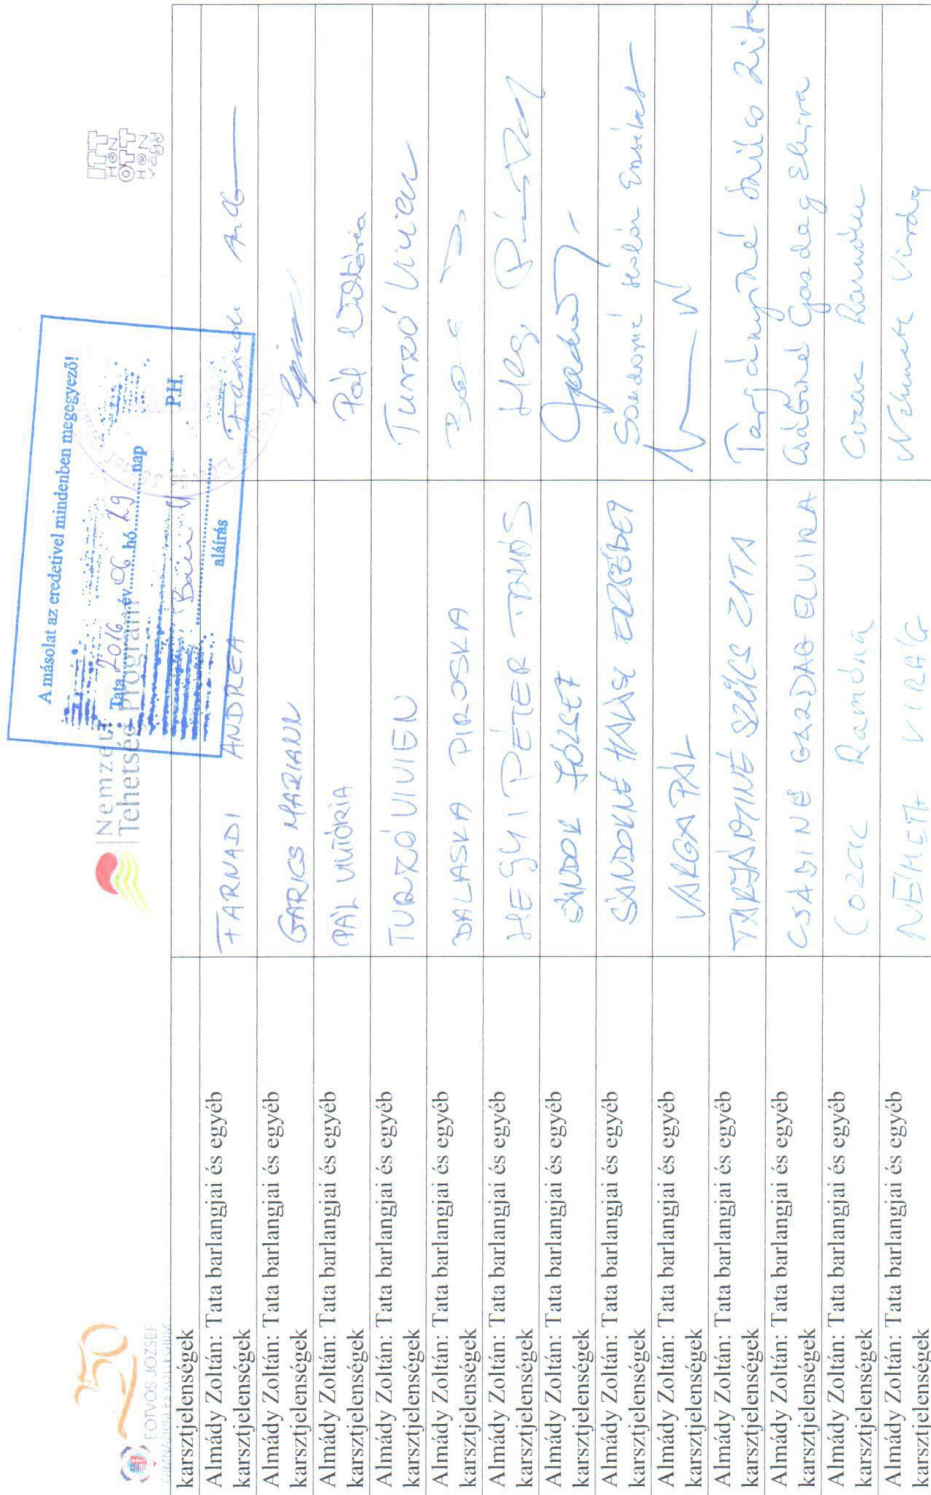 250
EÖTVÖS JÓZSEF
GIMNÁZIUM ÉS KOLLÉGIUM
Nemzeti
Tehetség Program
A másolat az eredetivel mindenben megegyező!
Tata, 2016 év 06 hó 29 nap
P.H.
aláírás
ITT
HON
OTT
HON
vagy
karsztjelenségek
Almády Zoltán: Tata barlangjai és egyéb
karsztjelenségek
FARNADI ANDREA
Almády Zoltán: Tata barlangjai és egyéb
karsztjelenségek
GARICS MARIANN
Almády Zoltán: Tata barlangjai és egyéb
karsztjelenségek
PÁL VIKTÓRIA
Pál Viktória
Almády Zoltán: Tata barlangjai és egyéb
karsztjelenségek
TURZÓ VIVIEN
Turzó Vivien
Almády Zoltán: Tata barlangjai és egyéb
karsztjelenségek
BALASKA PIROSKA
Almády Zoltán: Tata barlangjai és egyéb
karsztjelenségek
HEGYI PÉTER TAMÁS
Almády Zoltán: Tata barlangjai és egyéb
karsztjelenségek
SÁNDOR JÓZSEF
Almády Zoltán: Tata barlangjai és egyéb
karsztjelenségek
SÁNDORNÉ HALÁSZ ERZSÉBET
Almády Zoltán: Tata barlangjai és egyéb
karsztjelenségek
VARGA PÁL
Almády Zoltán: Tata barlangjai és egyéb
karsztjelenségek
TARJÁNYINÉ SZŰCS ZITA
Tarjányiné Szűcs Zita
Almády Zoltán: Tata barlangjai és egyéb
karsztjelenségek
CSABINÉ GAZDAG ELVIRA
Csabiné Gazdag Elvira
Almády Zoltán: Tata barlangjai és egyéb
karsztjelenségek
Cozac Ramóna
Cozac Ramóna
Almády Zoltán: Tata barlangjai és egyéb
karsztjelenségek
NÉMETH VIRÁG
Németh Virág